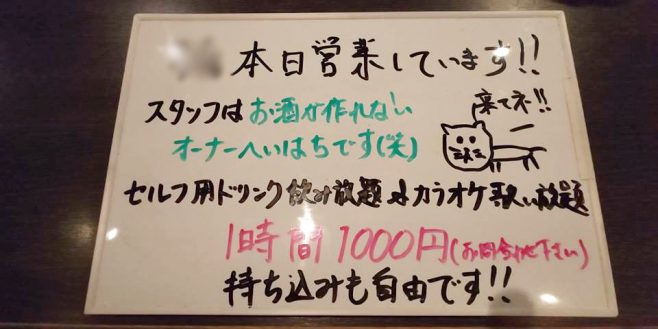 本日営業しています!!
スタッフはお酒が作れない
来てネ!!
オーナーへいはちです(笑)
セルフ用ドリンク飲み放題&カラオケ歌い放題
1時間1000円(お問合せ下さい)
持ち込みも自由です!!